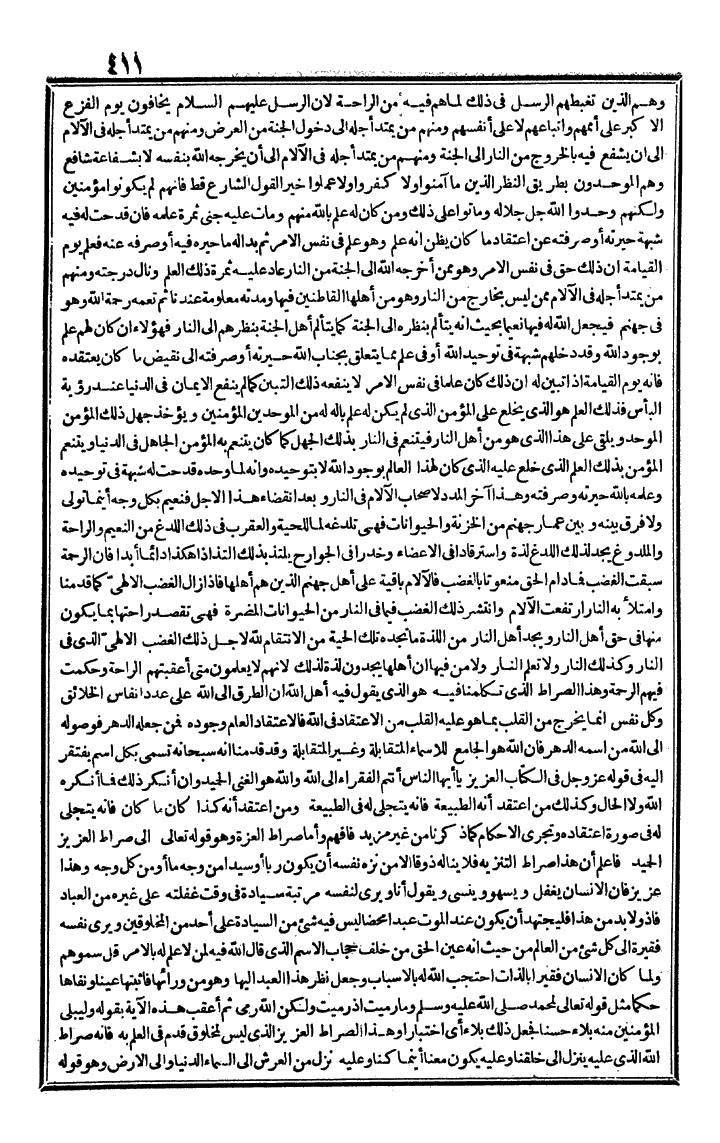 ٤١١
وهم الذين تغبطهم الرسل فى ذلك لماهم فيه من الراحة لان الرسل عليهم السلام يخافون يوم الفزع
الاكبر على أممهم واتباعهم لا على أنفسهم ومنهم من يمتد أجله الى دخول الجنة من العرض ومنهم من يمتد أجله فى الآلام
الى ان يشفع فيه بالخروج من النار الى الجنة ومنهم من يمتد أجله فى الآلام الى أن يخرجه الله بنفسه لا بشفاعة شافع
وهم الموحدون بطريق النظر الذين ما آمنوا ولا كفروا ولا عملوا خيرا لقول الشارع قط فانهم لم يكونوا مؤمنين
ولكنهم وحدوا الله جل جلاله وماتوا على ذلك ومن كان له علم بالله منهم ومات عليه جنى ثمرة علمه فان قدحت له فيه
شبهة حيرته أوصرفته عن اعتقاد ما كان يظن انه علم وهو علم فى نفس الامر ثم بداله ما حيره فيه أوصرفه عنه فعلم يوم
القيامة ان ذلك حق فى نفس الامر وهو ممن أخرجه الله الى الجنة من النار عاد عليه ثمرة ذلك العلم ونال درجته ومنهم
من يمتد أجله فى الآلام ممن ليس بخارج من النار وهو من أهلها القاطنين فيها ومدته معلومة عندنا ثم تعمه رحمة الله وهو
فى جهنم فيجعل الله له فيها نعيما بحيث انه يتألم بنظره الى الجنة كما يتألم أهل الجنة بنظرهم الى النار فهؤلاء ان كان لهم علم
بوجود الله وقد دخلهم شبهة فى توحيد الله أو فى علم مما يتعلق بجناب الله حيرته أوصرفته الى نقيض ما كان يعتقده
فانه يوم القيامة اذا تبين له ان ذلك كان علما فى نفس الامر لا ينفعه ذلك التبين كما لم ينفع الايمان فى الدنيا عند رؤية
البأس فذلك العلم هو الذى يخلع على المؤمن الذى لم يكن له علم بالله من الموحدين المؤمنين ويؤخذ جهل ذلك المؤمن
الموحد ويلقى على هذا الذى هو من أهل النار فيتنعم فى النار بذلك الجهل كما كان يتنعم به المؤمن الجاهل فى الدنيا ويتنعم
المؤمن بذلك العلم الذى خلع عليه الذى كان لهذا العالم بوجود الله لا بتوحيده وانه لما وحده قدحت له شبهة فى توحيده
وعلمه بالله حيرته وصرفته وهذا آخر المدد لاصحاب الآلام فى النار وبعد انقضاء هذا الاجل فنعيم بكل وجه أينما تولى
ولا فرق بينه وبين عمار جهنم من الخزنة والحيوانات فهى تلدغه لما للحية والعقرب فى ذلك اللدغ من النعيم والراحة
والملدوغ يجد لذلك اللدغ لذة واسترقادا فى الاعضاء وخدرا فى الجوارح يلتذ بذلك التذاذا هكذا دائما أبدا فان الرحمة
سبقت الغضب فمادام الحق منعوتا بالغضب فالآلام باقية على أهل جهنم الذين هم أهلها فاذا زال الغضب الالهى كما قدمنا
وامتلأ به النار ارتفعت الآلام وانتشر ذلك الغضب فيما فى النار من الحيوانات المضرة فهى تقصد راحتها بما يكون
منها فى حق أهل النار ويجد أهل النار من اللذة ما تجده تلك الحية من الانتقام لله لاجل ذلك الغضب الالهى الذى فى
النار وكذلك النار ولا تعلم النار ولا من فيها ان أهلها يجدون لذة لذلك لانهم لا يعلمون متى أعقبتهم الراحة وحكمت
فيهم الرحمة وهذا الصراط الذى تكلمنا فيه هو الذى يقول فيه أهل الله ان الطرق الى الله على عدد أنفاس الخلائق
وكل نفس انما يخرج من القلب بما هو عليه القلب من الاعتقاد فى الله فالاعتقاد العام وجوده فمن جعله الدهر فوصوله
الى الله من اسمه الدهر فان الله هو الجامع للاسماء المتقابلة وغير المتقابلة وقد قدمنا انه سبحانه تسمى بكل اسم يفتقر
اليه فى قوله عزوجل فى الكتاب العزيز يا أيها الناس أنتم الفقراء الى الله والله هو الغنى الحميد وان أنكر ذلك فما أنكره
الله ولا الحال وكذلك من اعتقد أنه الطبيعة فانه يتجلى له فى الطبيعة ومن اعتقد أنه كذا كان ما كان فانه يتجلى
له فى صورة اعتقاده وتجرى الاحكام كما ذكرنا من غير مزيد فافهم وأما صراط العزة وهو قوله تعالى الى صراط العزيز
الحميد فاعلم أن هذا صراط التنزيه فلا يناله ذوقا الا من نزه نفسه أن يكون ربا أو سيدا من وجه ما أو من كل وجه وهذا
عزيز فان الانسان يغفل ويسهو وينسى ويقول أنا ويرى لنفسه مرتبة سيادة فى وقت غفلته على غيره من العباد
فاذ ولا بد من هذا فليجتهد أن يكون عند الموت عبدا محضا ليس فيه شئ من السيادة على أحد من المخلوقين ويرى نفسه
فقيرة الى كل شئ من العالم من حيث انه عين الحق من خلف حجاب الاسم الذى قال الله فيه لمن لا علم له بالامر قل سموهم
ولما كان الانسان فقيرا بالذات احتجب الله له بالاسباب وجعل نظر هذا العبد اليها وهو من ورائها فاثبتها عينا ونفاها
حكما مثل قوله تعالى لمحمد صلى الله عليه وسلم وما رميت اذ رميت ولكن الله رمى ثم أعقب هذه الآية بقوله وليبلى
المؤمنين منه بلاء حسنا فجعل ذلك بلاء أى اختبارا وهذا الصراط العزيز الذى ليس لمخلوق قدم فى العلم به فانه صراط
الله الذى عليه ينزل الى خلقنا وعليه يكون معنا أينما كنا وعليه نزل من العرش الى السماء الدنيا والى الارض وهو قوله